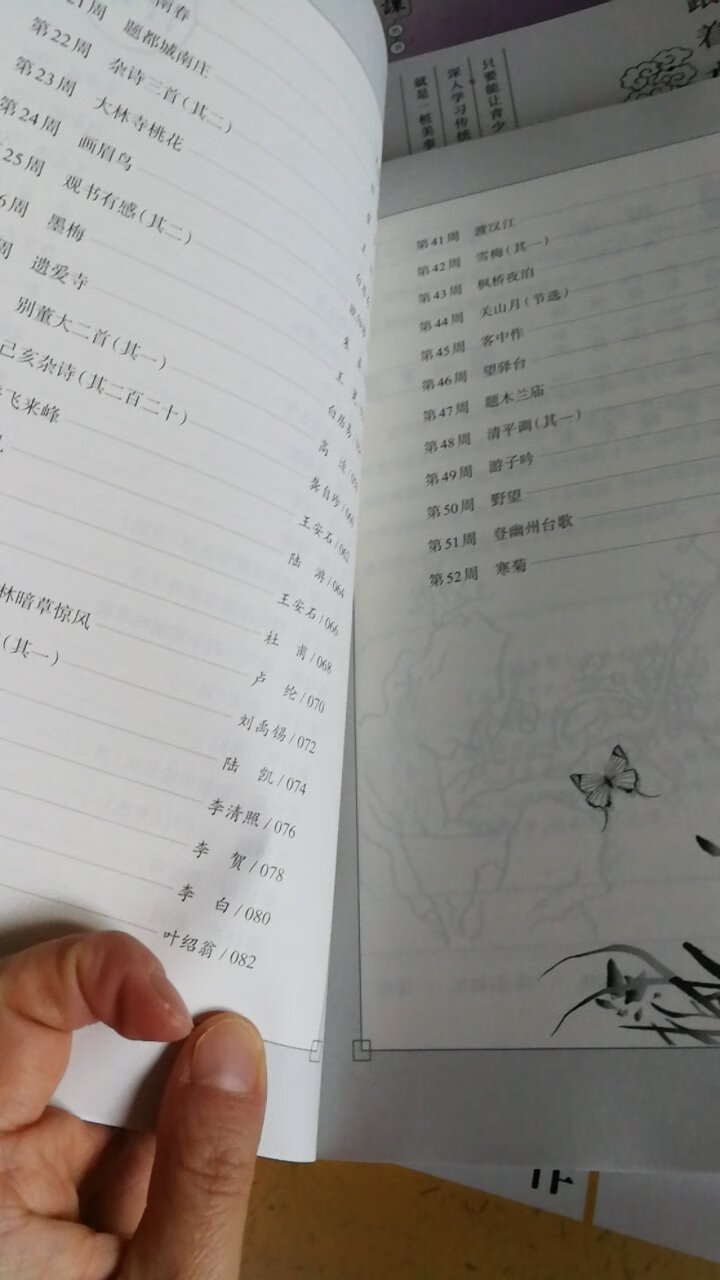 南春
21周 题都城南庄
第22周 杂诗三首(其二)
第23周 大林寺桃花
第24周 画眉鸟
25周 观书有感(其二)
6周 墨梅
周 遗爱寺
别董大二首(其一)
己亥杂诗(其二百二十)
飞来峰
白居易
高 适
龚自珍/060
王安石/062
陆 游/064
王安石/066
杜 甫/068
林暗草惊风 卢 纶/070
(其一) 刘禹锡/072
陆 凯/074
李清照/076
李 贺/078
李 白/080
叶绍翁/082
课
只要能让青少
深入学习传统
就是一桩美事
第41周 渡汉江
第42周 雪梅(其一)
第43周 枫桥夜泊
第44周 关山月(节选)
第45周 客中作
第46周 望驿台
第47周 题木兰庙
第48周 清平调(其一)
第49周 游子吟
第50周 野望
第51周 登幽州台歌
第52周 寒菊